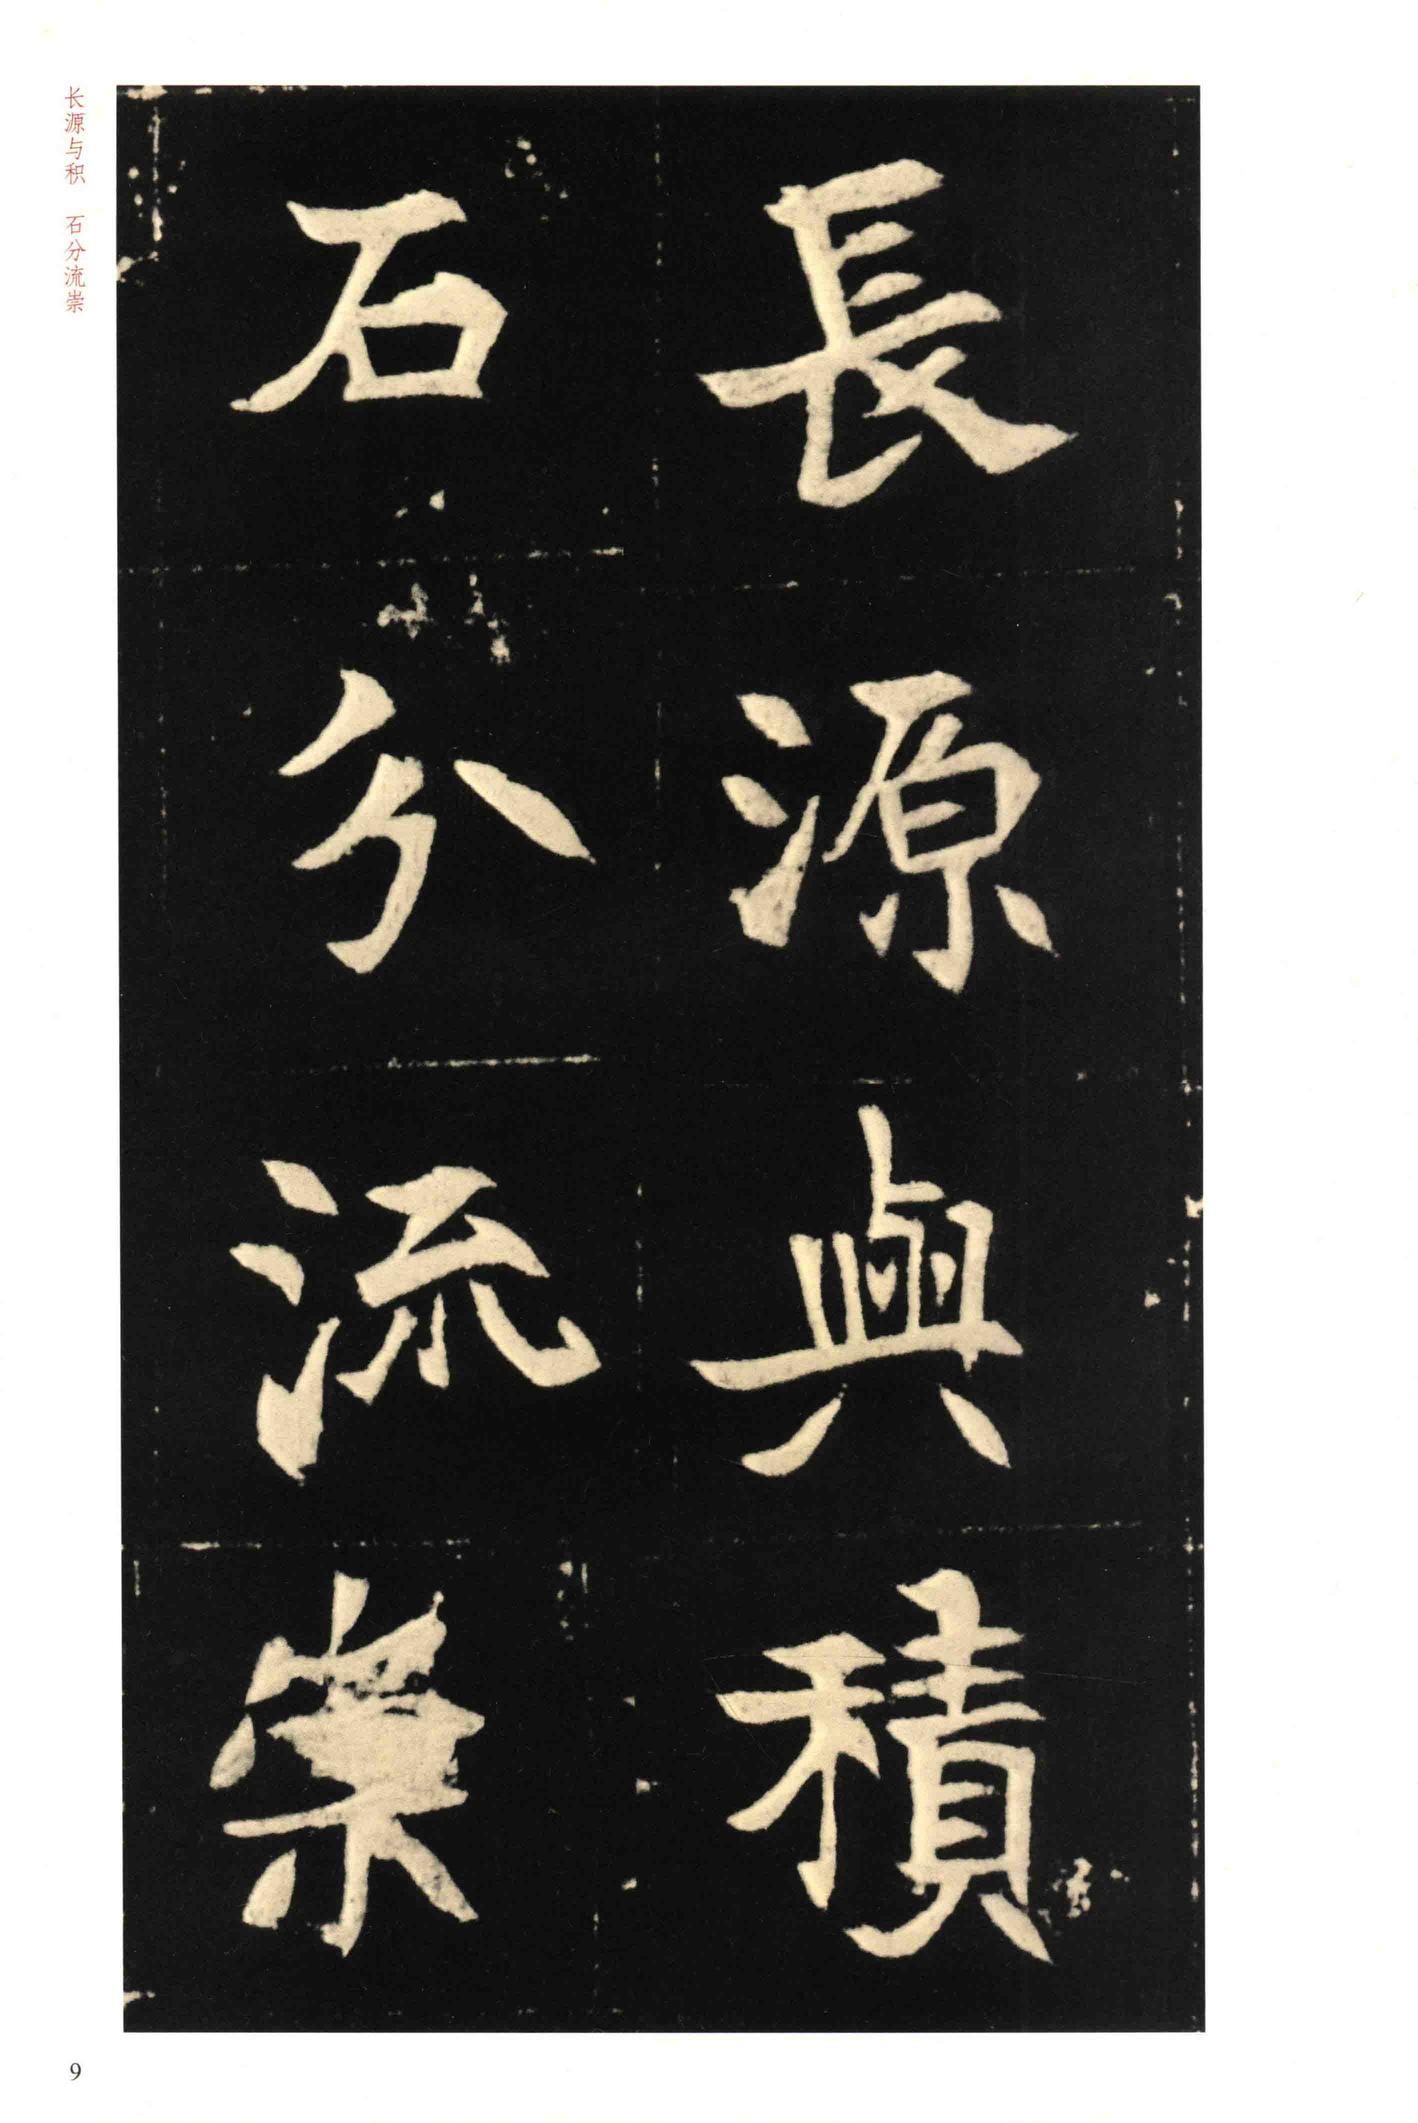 長源與積
石分流崇
长源与积 石分流崇
9